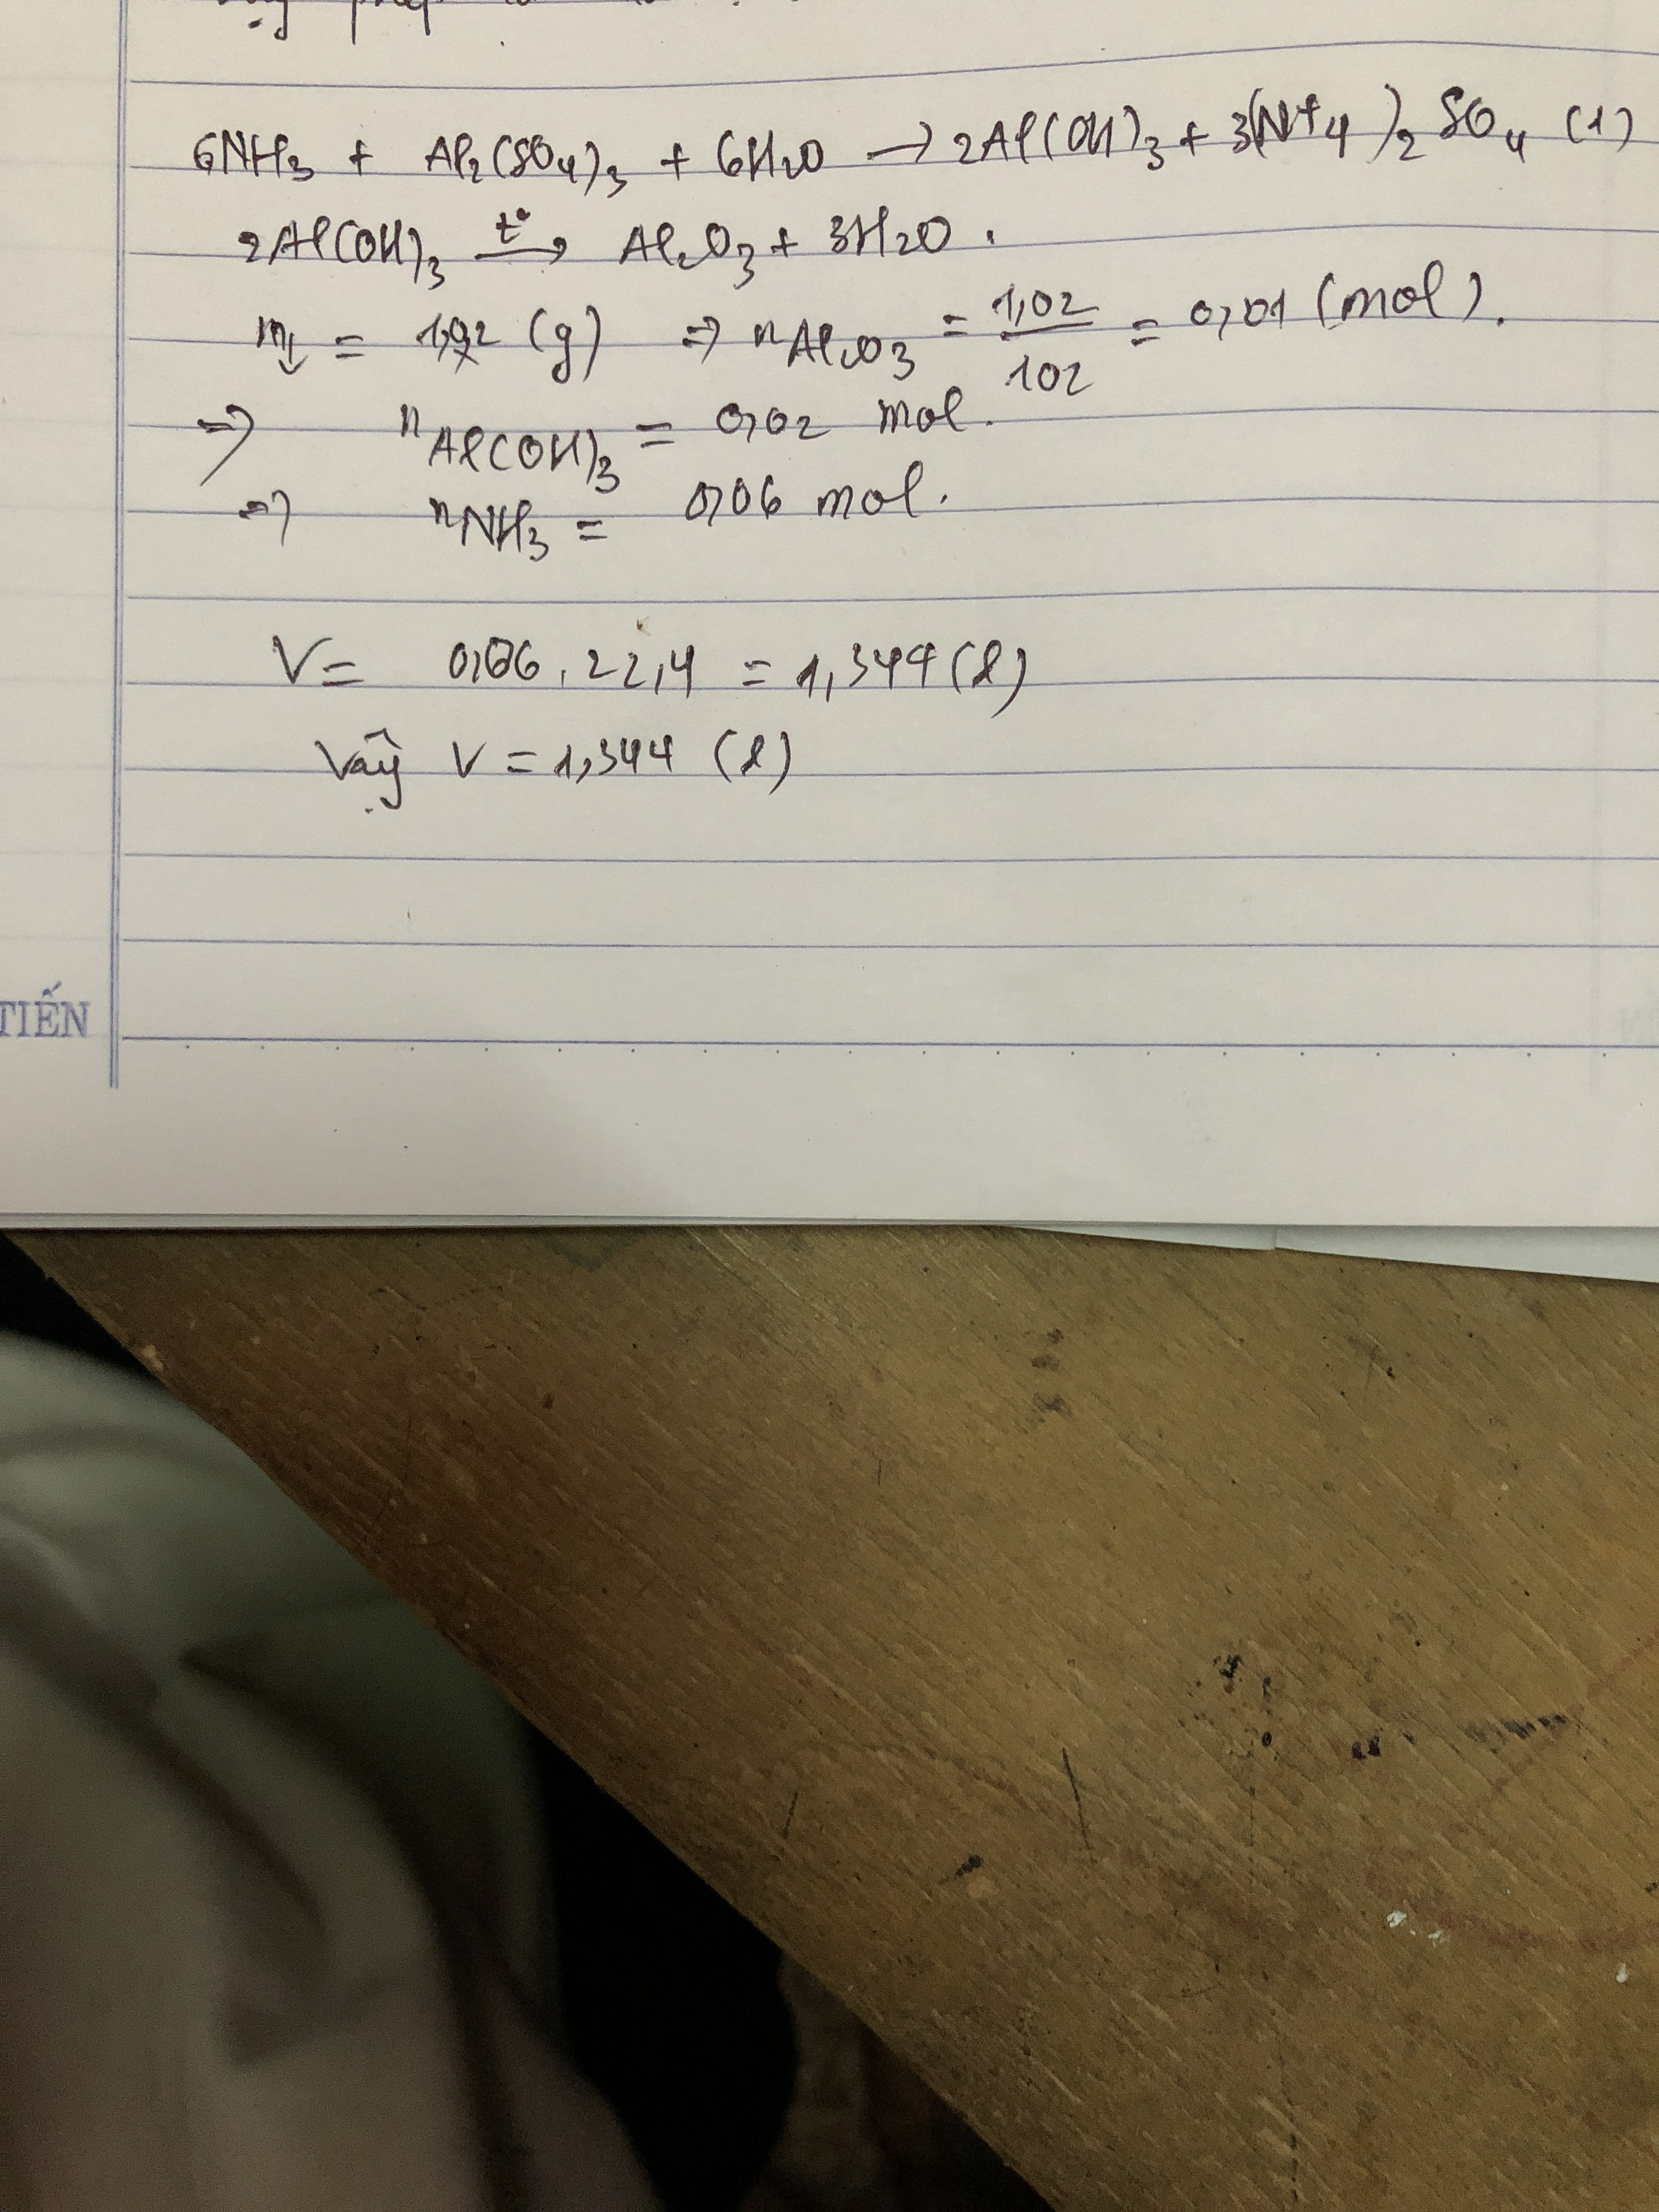 6NH₃ + Al₂(SO₄)₃ + 6H₂O → 2Al(OH)₃ + 3(NH₄)₂SO₄ (1)
2Al(OH)₃ t° → Al₂O₃ + 3H₂O.
m↓ = 1,02 (g) ⇒ nAl₂O₃ = 1,02/102 = 0,01 (mol).
⇒ nAl(OH)₃ = 0,02 mol.
⇒ nNH₃ = 0,06 mol.
V = 0,06 . 22,4 = 1,344 (l)
Vậy V = 1,344 (l)
TIẾN